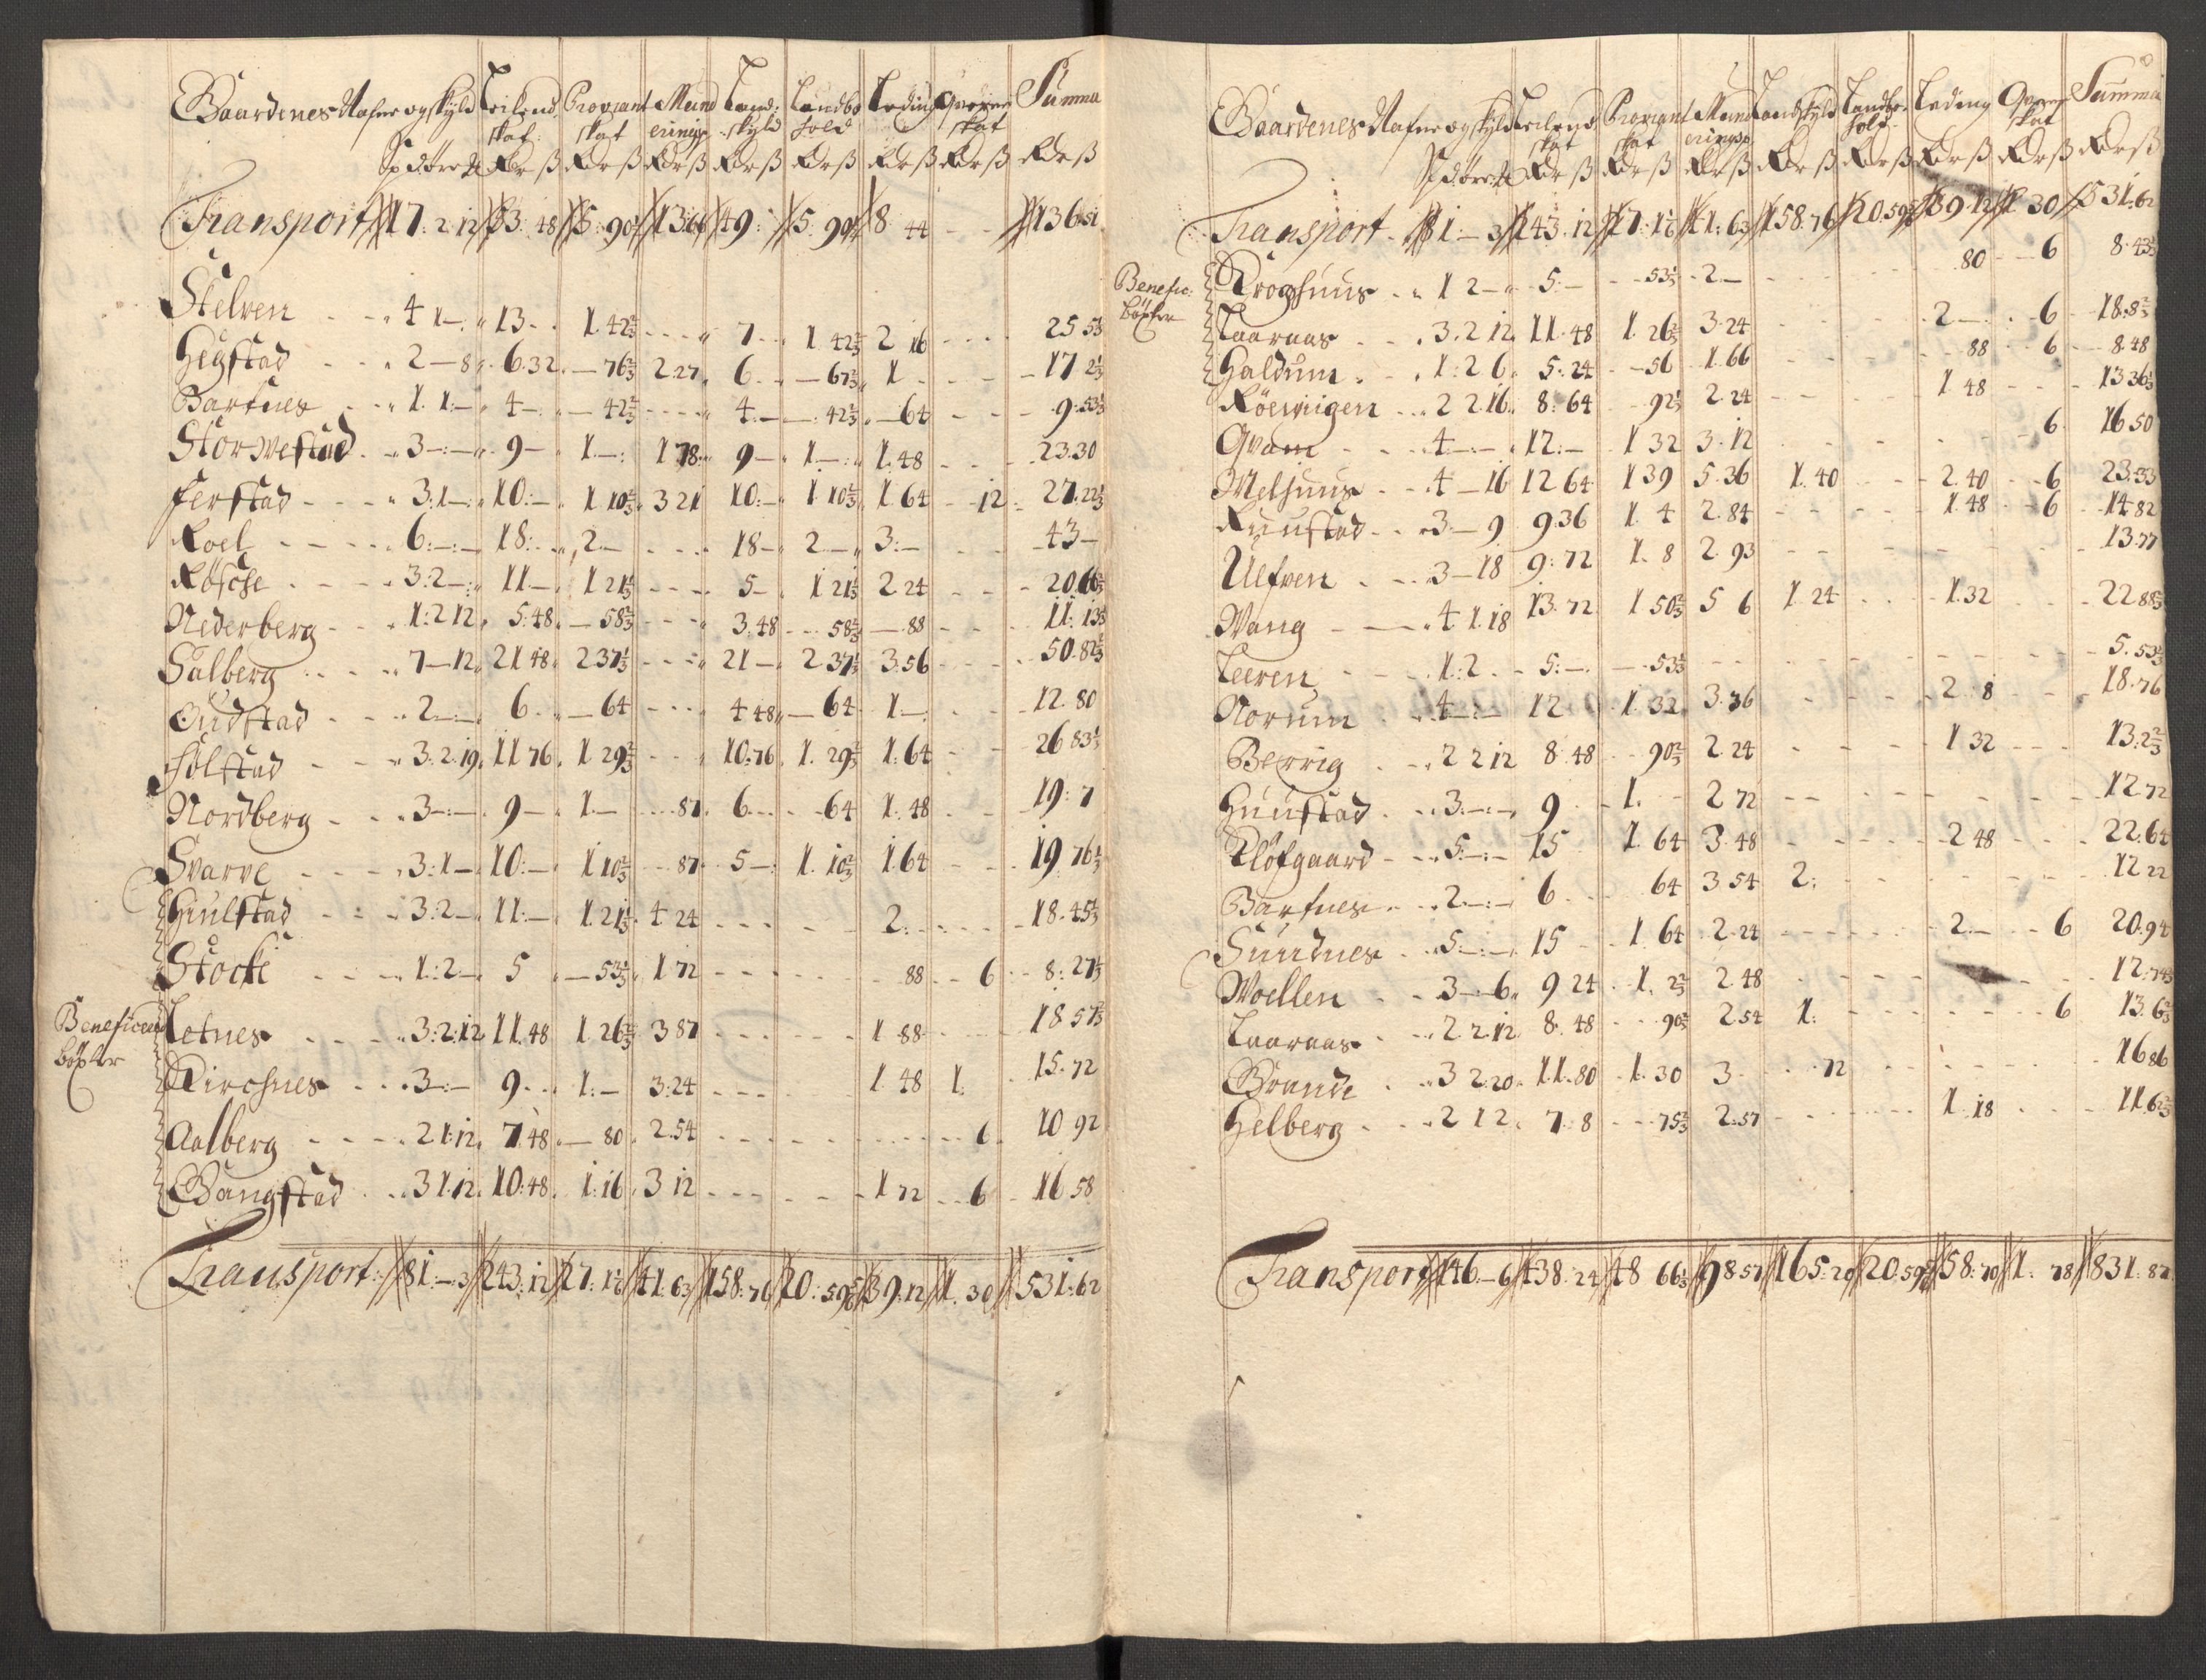 Gaardenes Nafne og skyld Leilend: skat Proviant skat Mund eringsp Land: skyld Landbo hold Leding Qværne skat Summa
Sp d. öre Rdr ß Rdr ß Rdr ß Rdr ß Rdr ß Rdr ß Rdr ß Rdr ß
Transport 17. 2. 12 53. 48 5. 90 13 66 49: 5. 90 8 44 - - 136 51
Stelven - - 4 1 -: 13 - - 1. 42 2/3 - - - 7 - - 1 42 2/3 2 16 - - - 25 53
Hegstad - - 2 - 8 6. 32 - 76 2/3 2. 27 6 - - 67 2/3 1 - - - 17 2 1/3
Bartnes - - 1. 1: - 4 - : - 42 2/3 - - - 4. - - 42 2/3 - 64 - - - 9: 53 1/3
Storwestad - 3 -: - 9 - 1. -: 1 78 9 - 1. -: 1. 48 - - - 23. 30
Ferstad - - - 3: 1 -: 10: - 1 10 2/3 3 21 10: - 1 10 2/3 1 64 - 12 27. 22 1/3
Roel - - - 6: -: - 18: - 2 - - - - 18 - 2. - 3: - - - 43 -
Rösche - - - 3: 2 - 11 - 1 21 1/3 - - - 5 - 1 21 1/3 2 24 - - - 20. 66 2/3
Nederberg - - 1: 2 12 5: 48 - 58 2/3 - - - 3. 48 - - 58 2/3 - 88 - - - 11. 13
Salberg - - - 7 - 12 21 48 2 37 1/3 - - - 21 - 2. 37 1/3 3. 56 - - - 50. 82 2/3
Gudstad - - - 2 -: - 6 - - 64 - - - 4 48 - 64 1 - : - - 12. 80
Folstad - - - 3. 2. 19 11 76 1 29 2/3 - - - 10. 76 1. 29 2/3 1: 64 - - - 26 83 1/3
Nordberg - - 3 -: - 9 - 1 - - - 87 6 - - - 64 1. 48 - - - 19: 7
Svarve - - - 3: 1 - 10: - 1 10 2/3 - - 87 5 - : 1. 10 2/3 1. 64 - - - 19. 76 1/3
Hiulstad - - - 3: 2 - 11: - 1. 21 1/3 4 24 - - - - - 2: - - - 18. 45 1/3
Stocke - - - 1: 2 - 5 - 53 1/3 1 72 - - - - - 88 - - 6 8: 27 1/3
Beneficeret bøxler
Letnes - - - 3: 2: 12 11. 48 1. 26 2/3 3 87 - - - - - 1 88 - - - 18 57 2/3
Kirchnes - - - 3 -: - 9 - - 1: - 3: 24 - - - - - 1 48 1. 15. 72
Aalberg - - - 2 1: 12 7 48 - 80 2. 54 - - - - - - - 6 10 92
Bangstad - - 3 1: 12 10: 48 1: 16 3 12 - - - - - 1 72 - - 6 16 58
Transport: 81 - 3 243. 12 27: 16 41: 63 158: 76 20: 59 2/3 39: 12 1. 30 531: 62
Gaardenes Nafne og skyld Leilend skat Proviant skat Mund eringsp Landskyld Landbo hold Leding Qværne skat Summa
Sp d. öre Rdr ß Rdr ß Rdr ß Rdr ß Rdr ß Rdr ß Rdr ß Rdr ß
Transport - 81 - 3 243. 12 27: 16 41: 63 158: 76 20. 59 2/3 39. 12 1 30 531. 62
Benefic: bøxler
Krogshuus - - 1 2 - 5: - - - 53 1/3 - 2 - - - - - 80 - - 6 8. 43 1/3
Laaraas - - . 3. 2 12 11. 48 1. 26 2/3 3. 24 - - - - - 2 - - - 6 18. 8 2/3
Haldum - - 1: 2 6 5: 24 - - 56 1. 66 - - - - - 88 - - 6 8. 48
Röewigen - - 2 2. 16 8: 64 - - 92 1/3 2. 24 - - - - - 1 48 - - - 13 36 1/3
Qvam - - - 4 -: - 12: - 1 32 3. 12 - - - - - - - 6 16 50
Melhuus - - 4 - 16 12 64 1 39 5. 36 1. 40 - - 2. 40 - - 6 23. 33
Ruustad - - 3 - 9 9 36 1. 4 2. 84 - - - - - 1. 48 - - 6 14. 82
Ulfven - - 3 - 18 9: 72 1. 8 2. 93 - - - - - - - - 13. 77
Wang - - 4 1. 18 13. 72 1 50 2/3 5 6 1. 24 - - - 1. 32 - - - 22 88 2/3
Leeren - - - 1: 2 - 5: - - 53 1/3 - - - - - - - - - 5. 53 1/3
Norum - - 4 -: - 12 1. 32 3. 36 - - - - - 2. 8 - - - 18. 76
Berrig - - 2 2 12 8. 48 - - 90 2/3 2 24 - - - - - 1 32 - - - 13: 2 2/3
Huustad - - 3 -: - 9 - 1. - 2 72 - - - - - - - - 12. 72
Kløfgaard - - 5 -: - 15 1. 64 3. 48 - - - - - 2 48 - - - 22. 64
Bartnes - - 2 -: - 6 - - 64 3 54 2: - - - - - - 12 22
Sundnes - - 5 -: - 15 - 1. 64 2. 24 - - - - - 2. - - - 6 20. 94
Woellen - - 3 - 6 9 24 1. 2 2/3 2. 48 - - - - - - - - 12. 74 2/3
Laaraas - - 2 2. 12 8. 48 - - 90 2/3 2 54 1: - - - - - - 6 13. 6 2/3
Brande - - 3 2. 20 11. 80 1. 30 3 - - - 72 - - - - - - 16 86
Helberg - - - 2 1 2 7: 8 - - - 75 2/3 2. 57 - - - - - 1. 18 - - - 11. 62 2/3
Transport 146 - 6 438. 24 48 66 1/3 98 57 165: 20 20. 59 2/3 58: 70 1. 78 831: 87